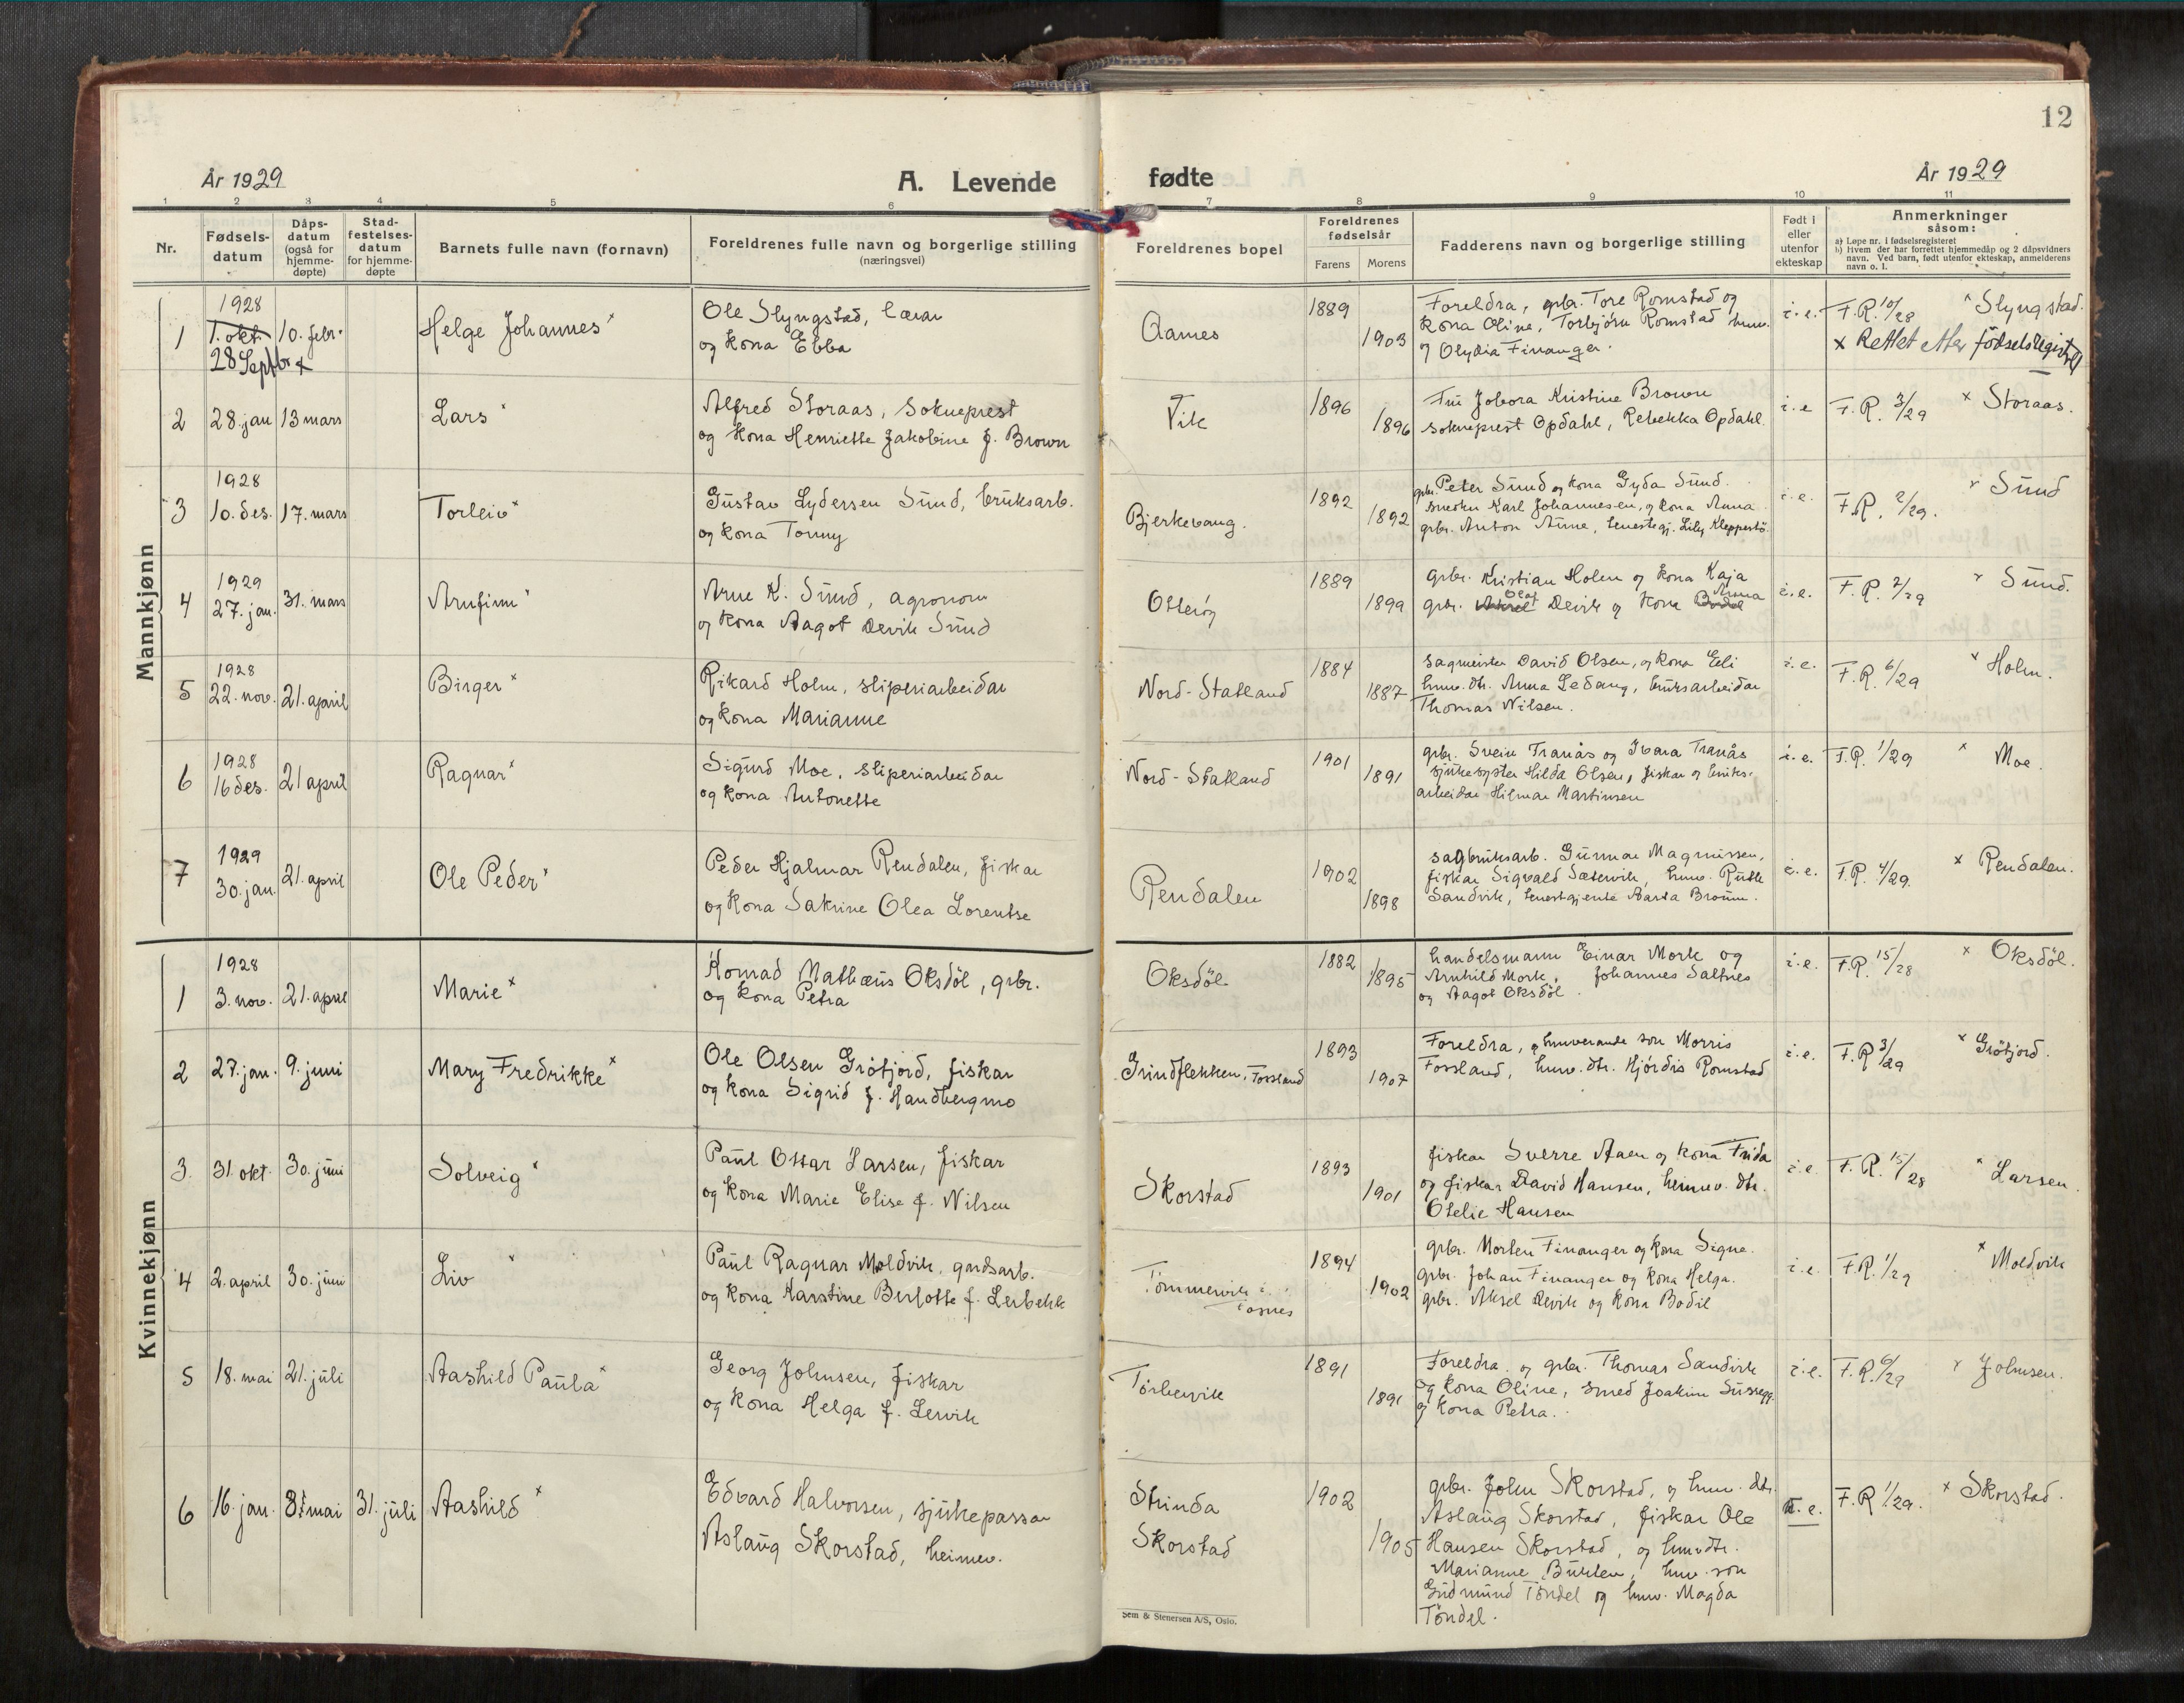 12
År 1929
A. Levende
fødte
År 1929
1 2 3 4 5 6 7 8 9 10 11
Nr.
Fødsels-datum
Dåps-datum (også for hjemme-døpte)
Stad-festelses-datum for hjemme-døpte
Barnets fulle navn (fornavn)
Foreldrenes fulle navn og borgerlige stilling (næringsvei)
Foreldrenes bopel
Foreldrenes fødselsår
Farens Morens
Fadderens navn og borgerlige stilling
Født i eller utenfor ekteskap
Anmerkninger såsom:
a) Løpe nr. i fødselsregisteret
b) Hvem der har forrettet hjemmedåp og 2 dåpsvidners navn. Ved barn, født utenfor ekteskap, anmelderens navn o. l.
Mannkjønn
1 1928 1. okt. 28 Septbr x 10. febr. Helge Johannes x
Ole Slyngstad, lærar
og kona Ebba
Aames 1889 1903
Foreldra, gbr. Tore Romstad og
kona Oline, Torbjörn Romstad hmv.
og Olydia Finanger.
i.e. F.R. 10/28 x Slyngstad.
x Rettet etter födselsregistret
2 28. jan 13 mars Lars x
Alfred Storaas, sokneprest
og kona Henriette Jakobine f. Brown
Vik 1896 1896
Fru Jobora Kristine Brown
sokneprest Opdahl, Rebekka Opdahl.
i.e F.R. 3/29 x Storaas.
3 1928 10. des. 17. mars Torleiv x
Gustav Lydersen Sund, bruksarb.
og kona Tonny
Bjerkevang. 1892 1892
gbr. Peter Sund og kona Gyda Sund.
snedker Karl Johannesen, og kona Anna
gbr. Anton Aune, tenestegj. Lily Kleppestö.
i.e. F.R. 2/29. x Sund
4 1929 27. jan. 31. mars Arnfinn x
Arne K. Sund, agronom
og kona Aagot Devik Sund
Otteröy 1889 1899
gbr. Kristian Holen og kona Kaja
gbr. Aksel Olaf Devik og kona Bodil Anna
i.e. F.R. 2/29 x Sund.
5 1928 22. nov. 21. april Birger x
Rikard Holm, sliperiarbeidar
og kona Marianne
Nord-Statland 1884 1887
sagmeister David Olsen, og kona Eli
hmv. dtr. Anna Ledang, bruksarbeidar
Thomas Nilsen.
i.e. F.R. 6/29 x Holm.
6 1928 16 des. 21 april Ragnar x
Sigurd Moe, sliperiarbeidar
og kona Antonette
Nord-Statland 1901 1891
gbr. Svein Tranås og Ivara Tranås
sjukesyster Hilda Olsen, fiskar og bruks-
arbeidar Hilmar Martinsen
i.e. F.R. 1/29 x Moe.
7 1929 30. jan. 21. april Ole Peder x
Peder Hjalmar Rendalen, fiskar
og kona Sakrine Olea Lorentse
Rendalen 1902 1898
sagbruksarb. Gunnar Magnussen,
fiskar Sigvald Sætervik, hmv. Ruth
Sandvik, tenestgjente Marta Broum.
i.e. F.R. 4/29. x Rendalen.
Kvinnekjønn
1 1928 3. nov. 21. april Marie x
Konrad Mathæus Oksdöl, gbr.
og kona Petra
Oksdöl 1882 1895
handelsmann Einar Mork og
Arnhild Mork, Johannes Saltnes
og Aagot Oksdöl
i.e. F.R. 15/28 x Oksdöl.
2 27. jan. 9. juni Mary Fredrikke x
Ole Olsen Grötfjord, fiskar
og kona Sigrid f. Handbergmo
Grindflekken, Fossland 1893 1907
Foreldra, og hmverande son Morris
Fossland, hmv. dtr. Hjördis Romstad
i.e. F.R 3/29 x Grötfjord.
3. 31. okt. 30. juni Solveig x
Paul Oskar Larsen, fiskar
og kona Marie Elise f. Nilsen
Skorstad 1893 1901
fiskar Sverre Aaen og kona Frida
og fiskar David Hansen, heimev. dtr.
Otelie Hansen
i.e. F.R. 15/28 x Larsen.
4 2. april 30. juni Liv x
Paul Ragnar Moldvik, gardsarb.
og kona Karstine Berlotte f. Lerbekk
Tömmervik i Fosnes 1894 1902
gbr. Morten Finanger og kona Signe.
gbr. Johan Finanger og kona Helga.
gbr. Aksel Devik og kona Bodil
i.e. F.R. 1/29 x Moldvik
5 18. mai 21. juli Aashild Paula x
Georg Johnsen, fiskar
og kona Helga f. Lervik
Törkervik 1891 1891
Foreldra, og gbr. Thomas Sandvik
og kona Oline, smed Joakim Sussegg.
og kona Petra.
i.e. F.R. 6/29 x Johnsen.
6 16. jan. 8. mai 31. juli Aashild x
Edvard Halvorsen, sjukepassar
Aslaug Skorstad, heimev.
Strinda
Skorstad
1902 1905
gbr. John Skorstad, og hmv. dtr.
Aslaug Skorstad, fiskar Ole
Hansen Skorstad, og hmv dtr.
Marianne Burlen, hmv. son
Gudmund Töndel og hmv. Magda
Töndel.
u.e. F.R 1/29. x Skorstad.
Sem & Stenersen A/S, Oslo.